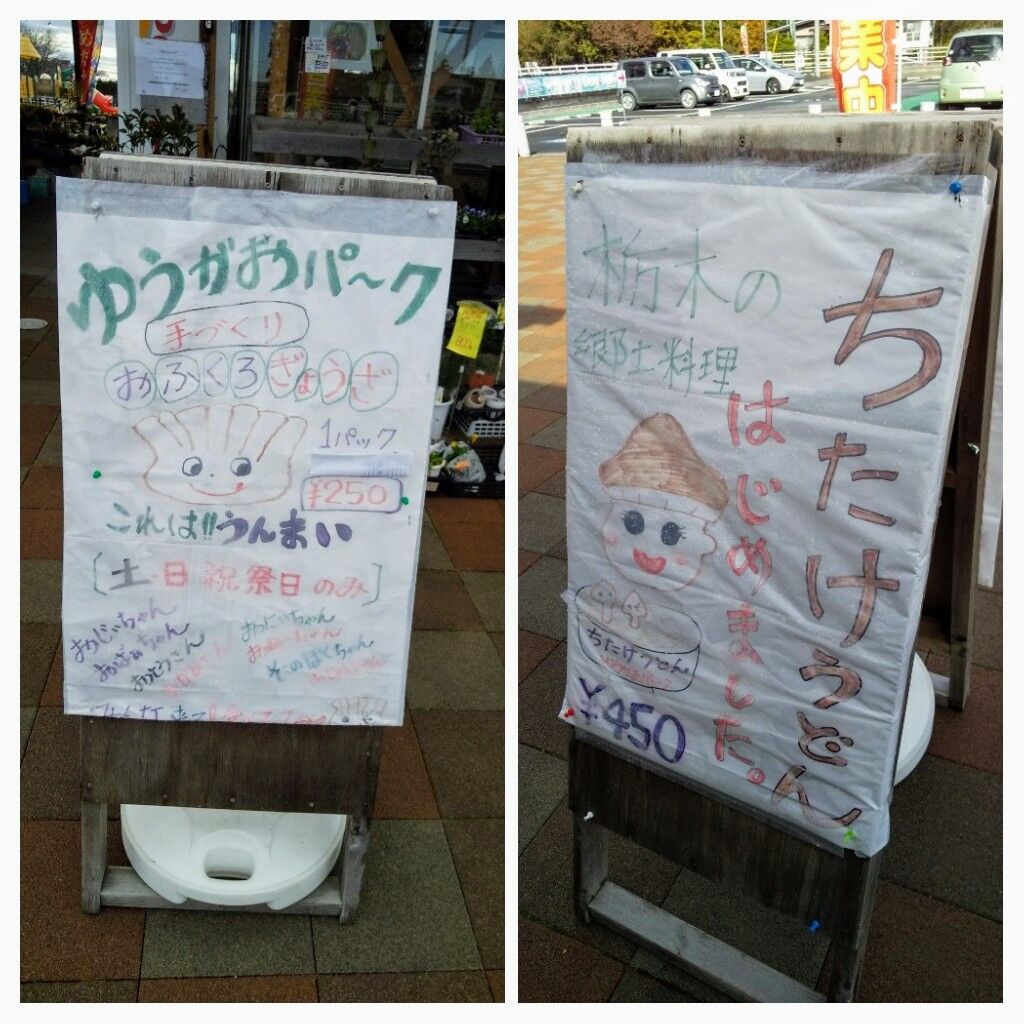 ゆうがおうパ〜ク
手づくり
おふくろぎょうざ
1パック
¥250
これは!!うんまい
[土・日祝祭日のみ]
おじぃちゃん
おばぁちゃん
おとうさん
おにいちゃん
そこのぼくちゃん
ちたけうどん
はじめました。
栃木の
郷土料理
ちたけうどん
¥450
集中